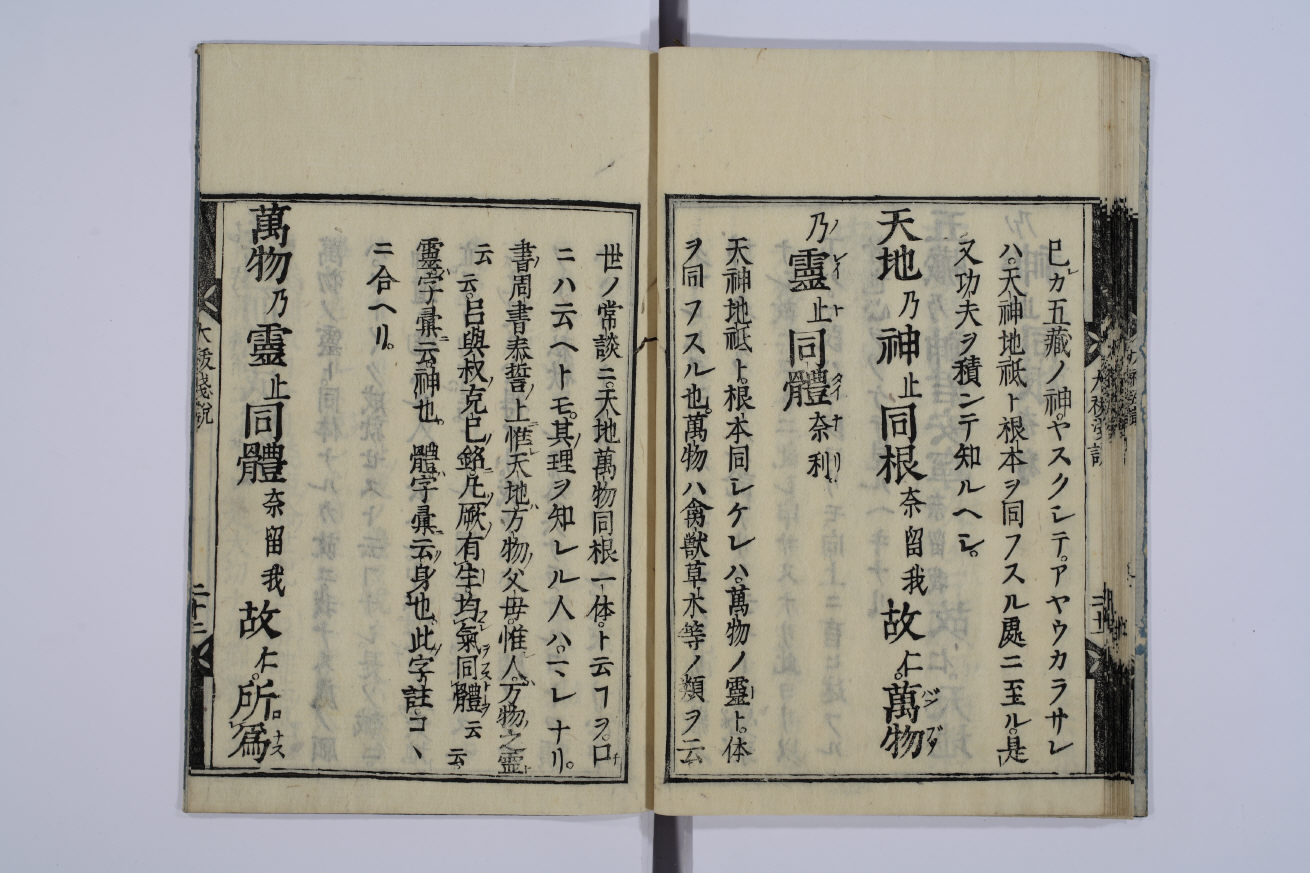 巳レカ五藏ノ神。ヤスクシテ。アヤウカラサレ
ハ。天神地祗ト根本ヲ同フスル處ニ至ル。是
又功夫ヲ積ンテ知ルヘシ。
天地乃神止同根奈留我故仁。萬物
乃靈止同體奈利。
天神地祗ト。根本同シケレハ。萬物ノ靈ト。体
ヲ同フスル也。萬物ハ禽獸草木等ノ類ヲ云
世ノ常談ニ。天地萬物同根一体。ト云フヲ。口
ニハ云ヘトモ。其理ヲ知レル人ハ。マレナリ。
書周書泰誓上惟天地万物父母。惟人万物之靈
云云。呂與叔克己銘。凡厥有生均氣同體云云
靈字彙云。神也。體字彙云身也。此字註コヽ
ニ合ヘリ。
萬物乃靈止同體奈留我故仁。所爲
二十二